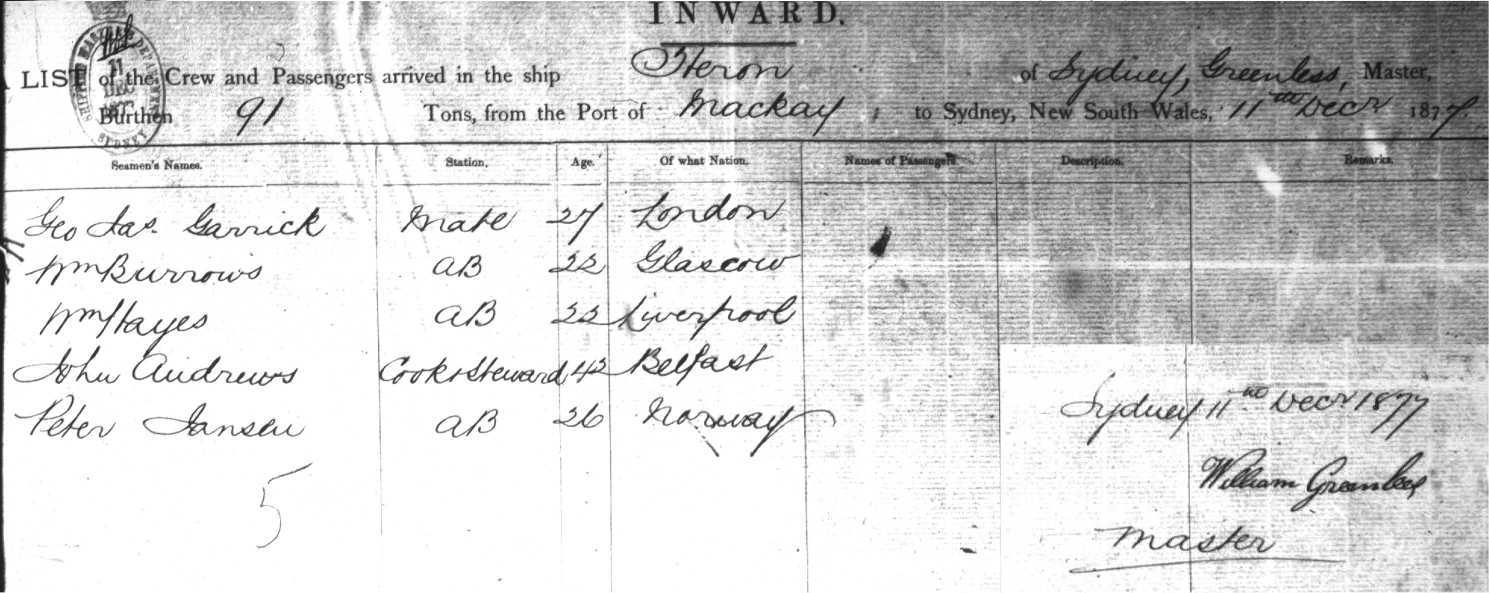 INWARD.
A LIST of the Crew and Passengers arrived in the ship Heron of Sydney, Greenlees, Master,
Burthen 91 Tons, from the Port of Mackay to Sydney, New South Wales, 11th Decr 1877.
Seamen's Names. Station. Age. Of what Nation. Names of Passengers. Description. Remarks.
Geo Jas. Garrick Mate 27 London
Wm Burrows AB 22 Glascow
Wm Hayes AB 22 Liverpool
John Andrews Cook & Steward 42 Belfast
Peter Jansen AB 26 Norway
5
Sydney 11th Decr 1877
William Greenlees
Master